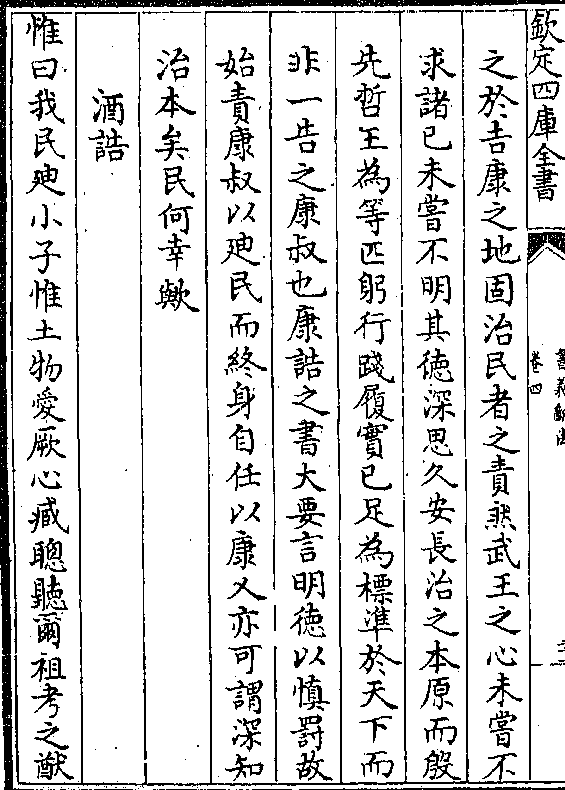 欽定四庫全書
書義斷法
卷四
之於吉康之地固治民者之責然武王之心未嘗不
求諸已未嘗不明其德深思久安長治之本原而殷
先哲王為等匹躬行踐履實已足為標準於天下而
非一告之康叔也康誥之書大要言明德以慎罰故
始責康叔以廸民而終身自任以康乂亦可謂深知
治本矣民何幸歟
酒誥
惟曰我民廸小子惟土物愛厥心臧聰聽爾祖考之猷